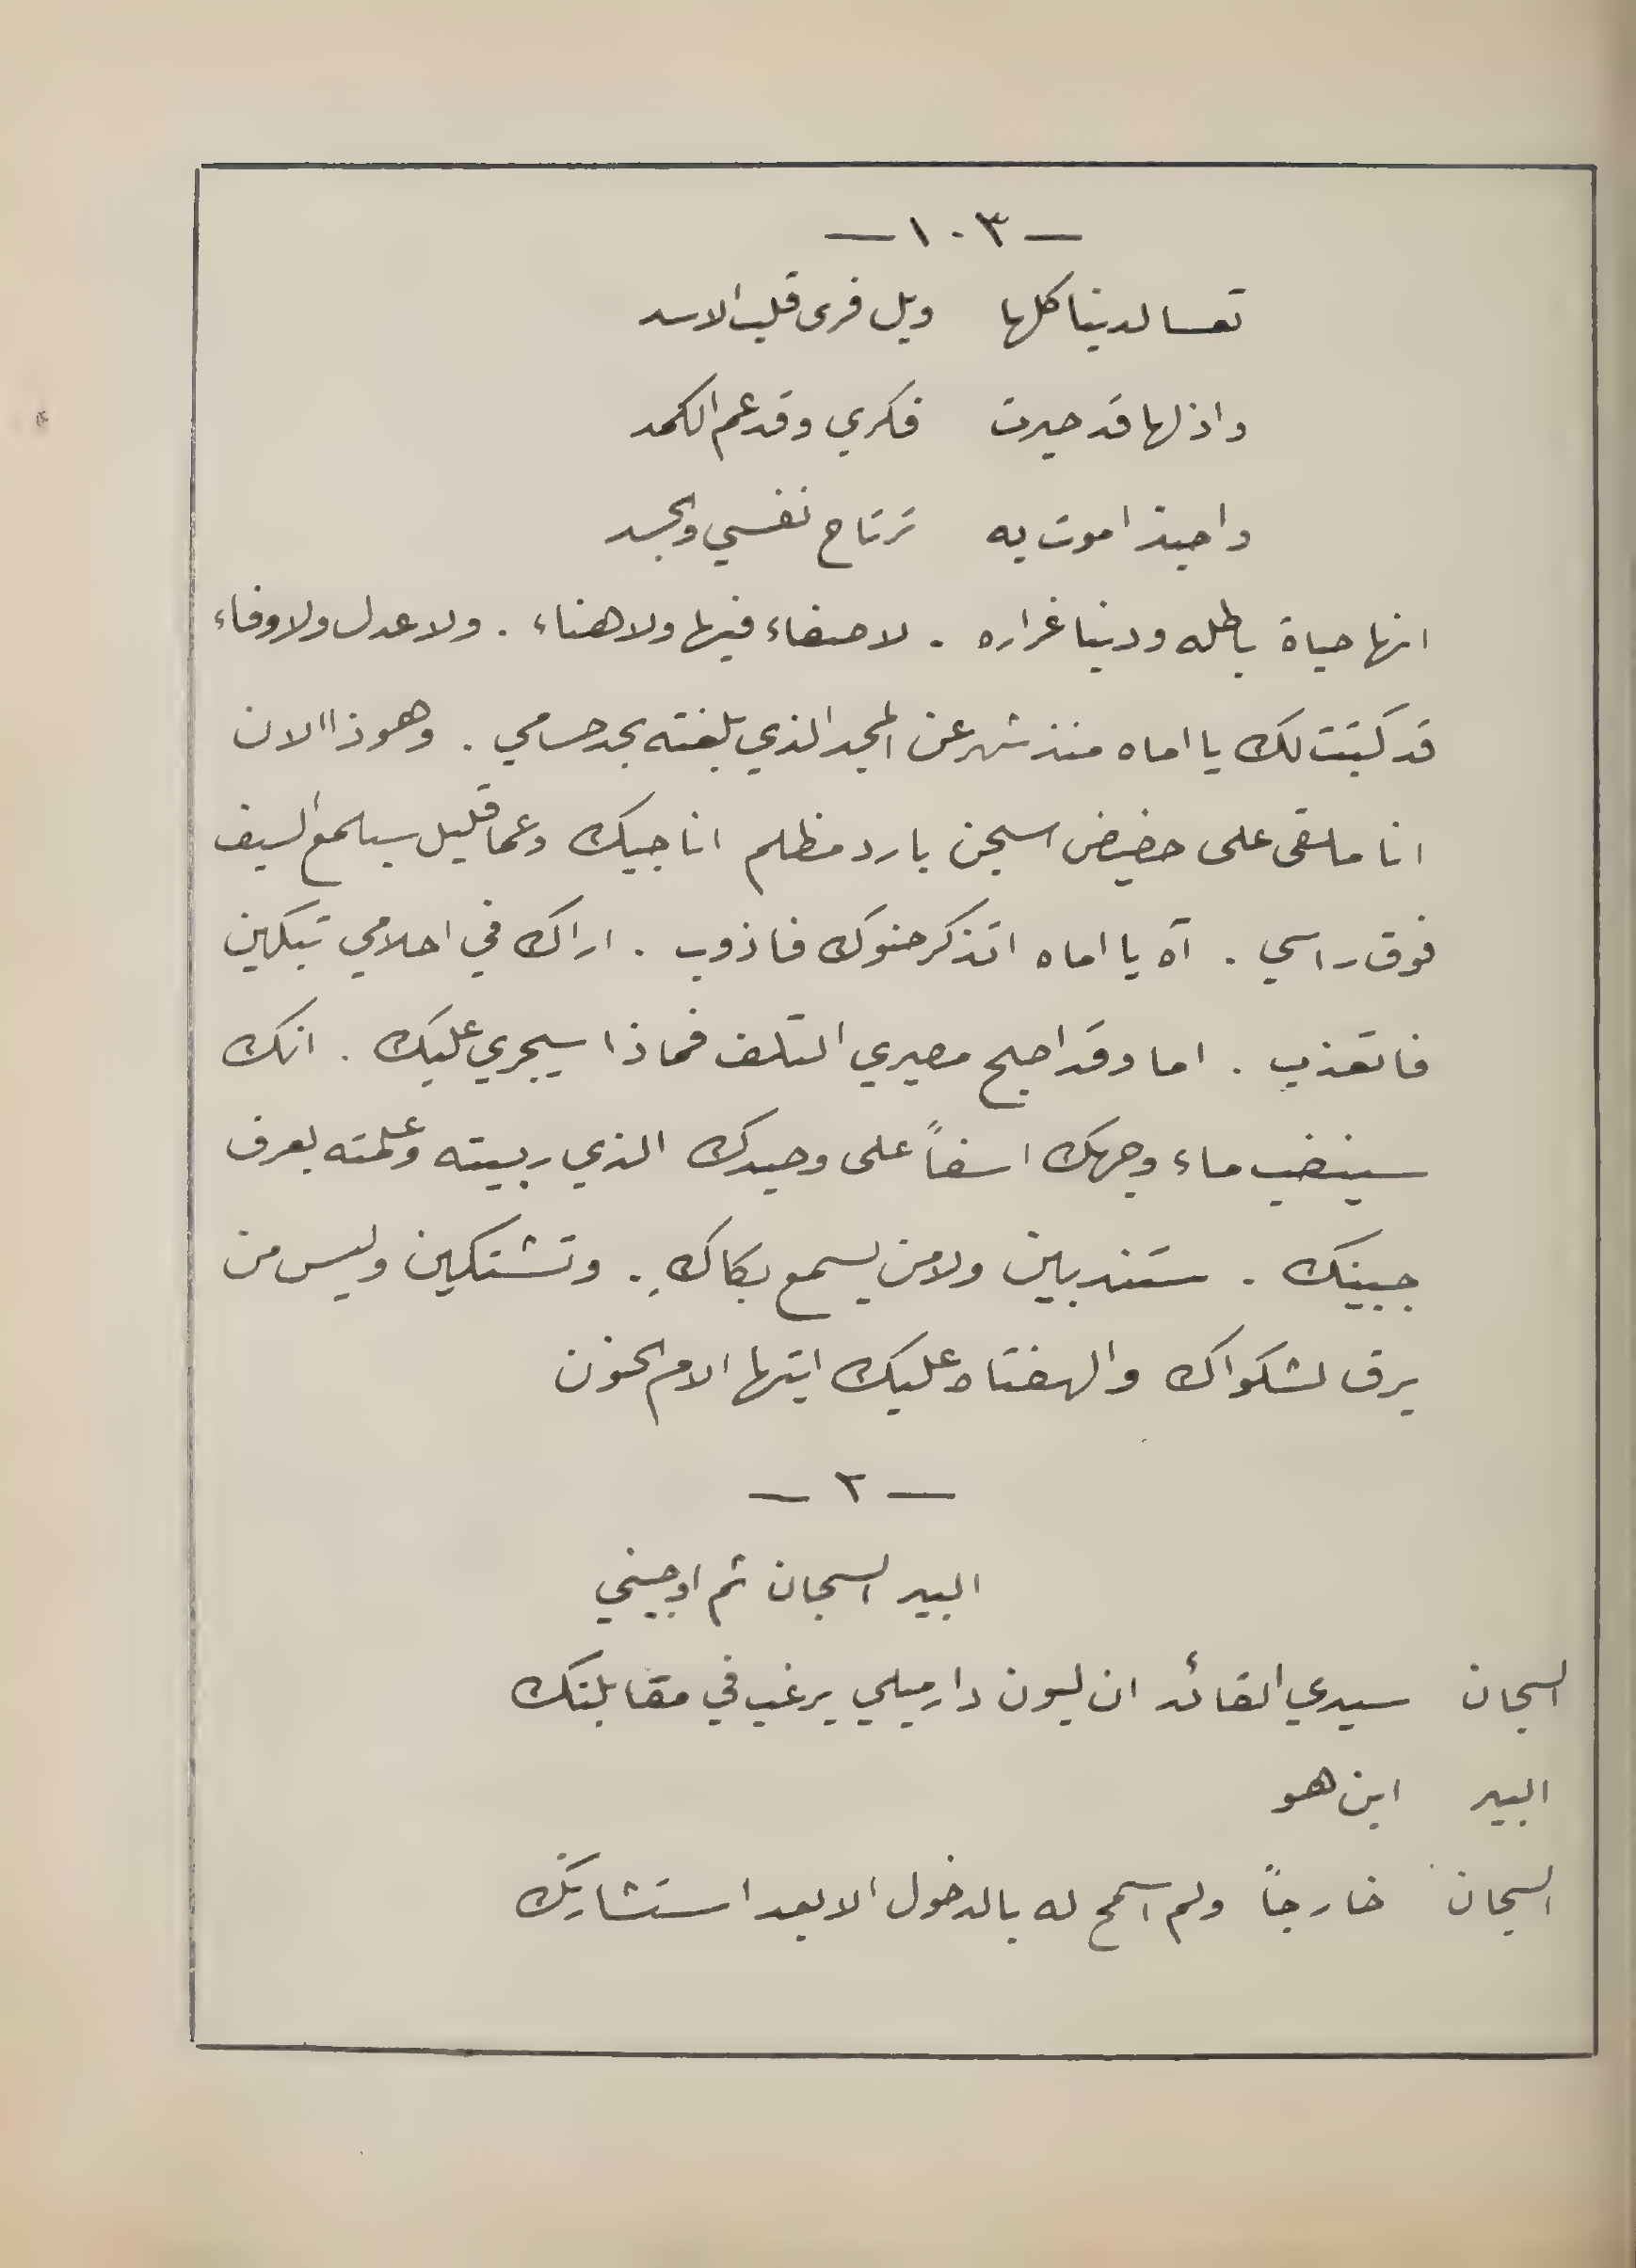 — ١٠٣ —
تعسا لدنيا كلها ويل فرى قلب الاسد
واذلها قد حيرت فكري وقد عم الكمد
واحبذا موت به ترتاح نفسي والجسد
انها حياة باطله ودنيا غراره . لا صفاء فيها ولا هناء . ولا عدل ولا وفاء
قد كتبت لك يا اماه منذ شهر عن المجد الذي بلغته بحد حسامي . وهوذا الان
انا ملقى على حضيض سجن بارد مظلم اناجيك وعما قليل سيلمع السيف
فوق راسي . آه يا اماه اتذكر حنوك فاذوب . اراك في احلامي تبكين
فاتعذب . اما وقد اصبح مصيري التلف فماذا سيجري عليك . انك
سينضب ماء وجهك اسفاً على وحيدك الذي ربيته وعلمته بعرف
جبينك . ستندبين ولا من يسمع بكاكِ . وتشتكين وليس من
يرق لشكواك والهفتاه عليك ايتها الام الحنون
— ٢ —
البير السجان ثم اوجيني
السجان سيدي القائد ان ليون دارميلي يرغب في مقابلتك
البير اين هو
السجان خارجاً ولم اسمح له بالدخول الا بعد استشارتك